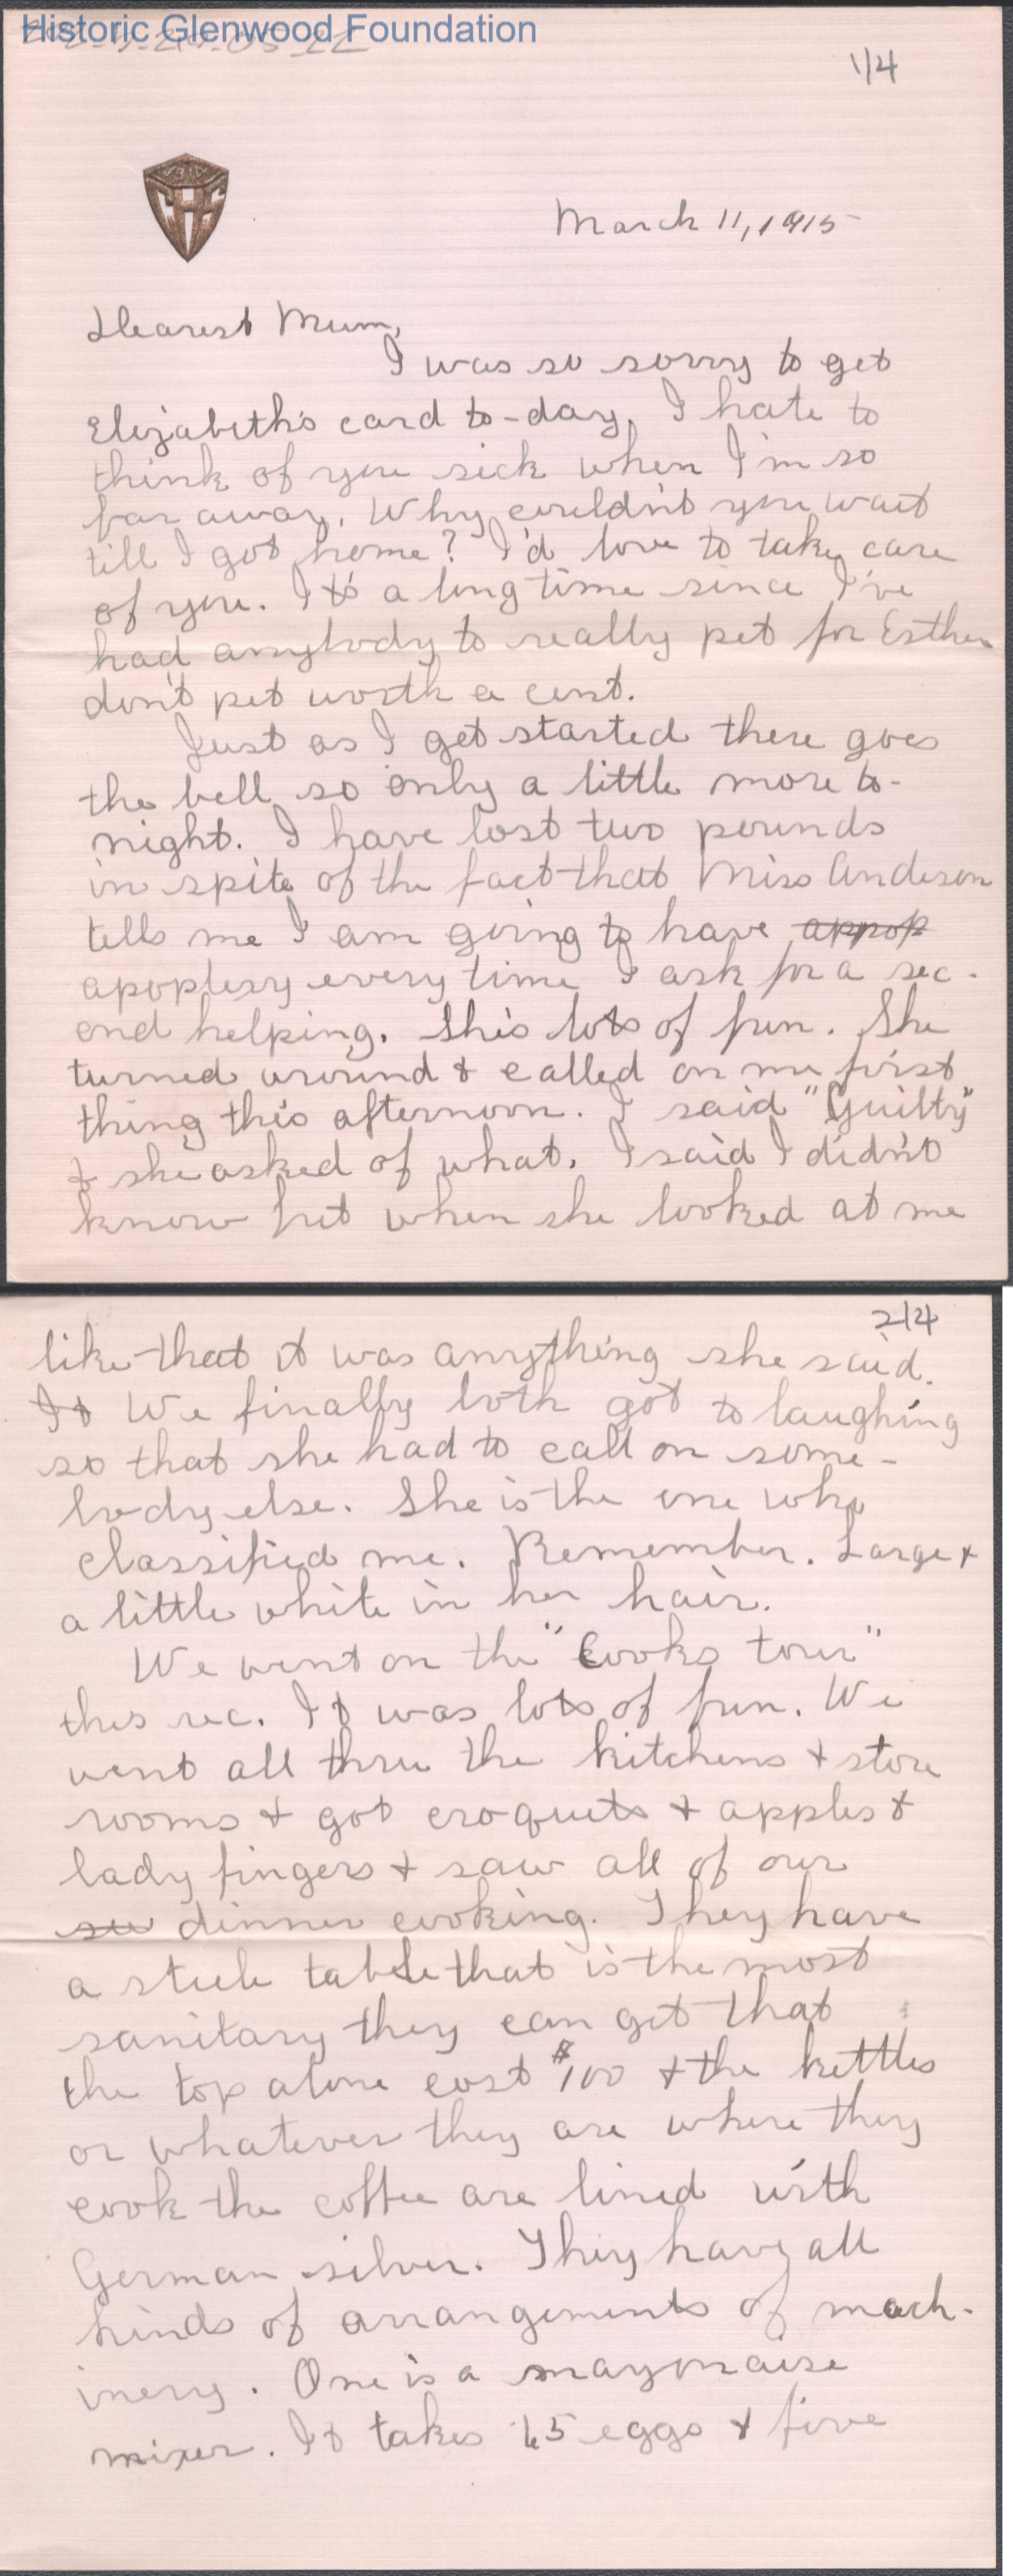 Historic Glenwood Foundation
1/4
March 11, 1915
Dearest Mum,
I was so sorry to get
Elizabeth's card to-day. I hate to
think of you sick when I'm so
far away. Why couldn't you wait
till I got home? I'd love to take care
of you. It's a long time since I've
had anybody to really pet for Esther
don't pet worth a cent.
Just as I get started there goes
the bell so only a little more to-
night. I have lost two pounds
in spite of the fact that Miss Anderson
tells me I am going to have appop
apoplexy every time I ask for a sec-
ond helping. She's lots of fun. She
turned around & called on me first
thing this afternoon. I said "Guilty"
& she asked of what. I said I didn't
know but when she looked at me
2/4
like that it was anything she said.
It We finally both got to laughing
so that she had to call on some-
body else. She is the one who
classified me. Remember. Large &
a little white in her hair.
We went on the "Cooks tour"
this rec. It was lots of fun. We
went all thru the kitchens & store
rooms & got croquets & apples &
lady fingers & saw all of our
su dinner cooking. They have
a steele table that is the most
sanitary they can get that
the top alone cost $100 & the kettles
or whatever they are where they
cook the coffee are lined with
German silver. They have all
kinds of arrangements of mach-
inery. One is a mayonaise
mixer. It takes 45 eggs & five